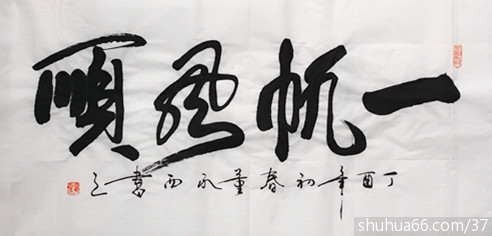 一帆風順
丁酉年初春董永西書之
shuhua66.com/37